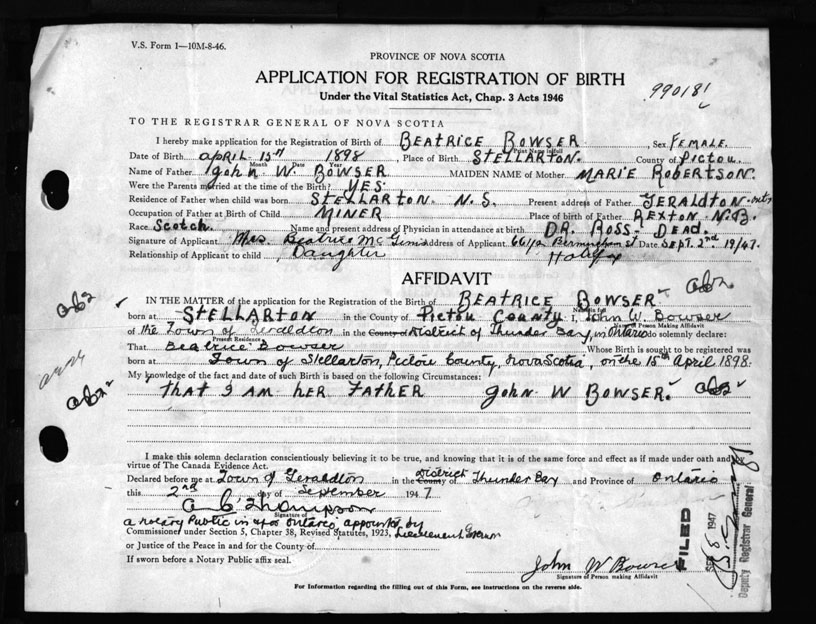 V.S. Form 1—10M-8-46.
PROVINCE OF NOVA SCOTIA
APPLICATION FOR REGISTRATION OF BIRTH
Under the Vital Statistics Act, Chap. 3 Acts 1946
990181
TO THE REGISTRAR GENERAL OF NOVA SCOTIA
I hereby make application for the Registration of Birth of BEATRICE BOWSER, Sex FEMALE.
Print Name in full
Date of Birth APRIL 15th 1898, Place of Birth STELLARTON. County of PICTOU.
Month Date Year
Name of Father John W. BOWSER MAIDEN NAME of Mother MARIE ROBERTSON.
Were the Parents married at the time of the Birth? YES.
Residence of Father when child was born STELLARTON N.S. Present address of Father GERALDTON ont.
Occupation of Father at Birth of Child MINER Place of birth of Father REXTON N.B.
Race Scotch. Name and present address of Physician in attendance at birth DR. ROSS- DEAD.
Signature of Applicant Mrs. Beatrice McGinis Address of Applicant 66 1/2 Birmingham St Date SEPT. 2nd 19/47.
Relationship of Applicant to child Daughter Halifax
AFFIDAVIT
IN THE MATTER of the application for the Registration of the Birth of BEATRICE BOWSER
Name in full
born at STELLARTON in the County of PICTOU COUNTY I, John W. Bowser
Person Making Affidavit
of the Town of Geraldton in the County of District of Thunder Bay, in Ontario do solemnly declare:
Present Residence
That Beatrice Bowser Whose Birth is sought to be registered was
born at Town of Stellarton, Pictou County, Nova Scotia, on the 15th April 1898.
My knowledge of the fact and date of such Birth is based on the following Circumstances:
THAT I AM HER FATHER JOHN W BOWSER.
I make this solemn declaration conscientiously believing it to be true, and knowing that it is of the same force and effect as if made under oath and by
virtue of The Canada Evidence Act.
Declared before me at Town of Geraldton in the County District of Thunder Bay and Province of Ontario
this 2nd day of September 1947
A C Thompson
Signature of
a notary Public in & for Ontario, appointed by
Commissioner under Section 5, Chapter 38, Revised Statutes, 1923, Lieutenant Governor
or Justice of the Peace in and for the County of
If sworn before a Notary Public affix seal.
John W Bowser
Signature of Person making Affidavit
FILED
SEP 8 1947
Deputy Registrar General
For Information regarding the filling out of this Form, see instructions on the reverse side.